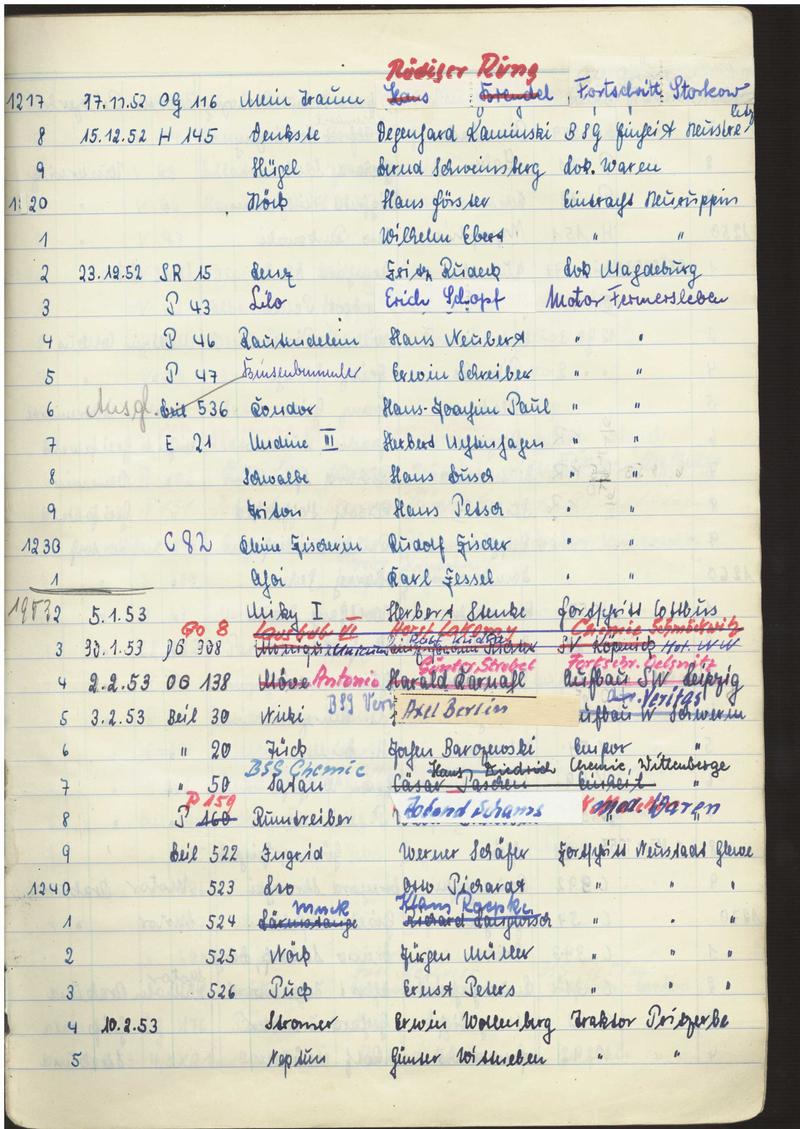 Rüdiger Ring
1217 17.11.52 OG 116 Mein Traum Hans Frendel Fortschritt Storkow
8 15.12.52 H 145 Denkste Degenhard Kaminski BSG Einheit Neustrelitz
9 Hügel Bernd Schweinsberg Lok. Waren
1220 Nöck Hans Förster Eintracht Neuruppin
1 Wilhelm Ebert " "
2 23.12.52 SR 15 Lenz Fritz Rudeck Lok Magdeburg
3 P 43 Lilo Erich Schopf Motor Fermersleben
4 P 46 Rautendelein Hans Neubert " "
5 P 47 Binsenbummler Erwin Schreiber " "
6 Ausgl. Beil 536 Condor Hans-Joachim Paul " "
7 E 21 Undine III Herbert " "
8 Schwalbe Hans Busch " "
9 Triton Hans Petsch " "
1230 C 82 Kleine Fischerin Rudolf Fischer " "
1 Ahoi Karl Fessel " "
1953 2 5.1.53 Micky I Herbert Stenke Fortschritt Cottbus
GO 8 Lausbub III Horst Lakomy Chemie Schmöckwitz
3 30.1.53 OG 308 SV Köpenick
Günter Strobel Fortschr. Oelsnitz
4 2.2.53 OG 138 Möve Antonio Harald Karnahl Aufbau SW Leipzig
BSG Veritas
5 3.2.53 Beil 30 Nicki Axel Berlin Aufbau W Schwerin
6 " 20 Jück Jochen Barozewski Empor "
BSG Chemie Hans Friedrich Chemie, Wittenberge
7 " 50 Satan Cäsar Paschen Einheit "
P 159
8 P 160 Rumtreiber Schams Motor Waren
9 Beil 522 Ingrid Werner Schäfer Fortschritt Neustadt Glewe
1240 523 Otto " "
muck Klaus Raepke
1 524 Lärmstange Richard " "
2 525 Nöck Jürgen Müller " "
3 526 Puck Ernst Peters " "
4 10.2.53 Stromer Erwin Wollenberg Traktor Pritzerbe
5 Neptun Günter Wittrieben " "